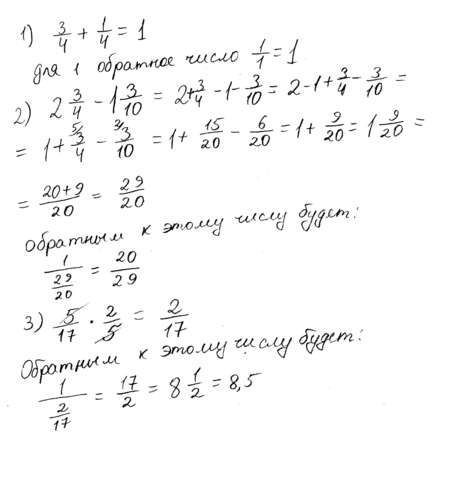 1) 3/4 + 1/4 = 1
для 1 обратное число 1/1 = 1
2) 2 3/4 - 1 3/10 = 2 + 3/4 - 1 - 3/10 = 2 - 1 + 3/4 - 3/10 =
= 1 + 5/ 3/4 - 2/ 3/10 = 1 + 15/20 - 6/20 = 1 + 9/20 = 1 9/20 =
= 20+9/20 = 29/20
обратным к этому числу будет:
1/(29/20) = 20/29
3) 5/17 · 2/5 = 2/17
Обратным к этому числу будет:
1/(2/17) = 17/2 = 8 1/2 = 8,5